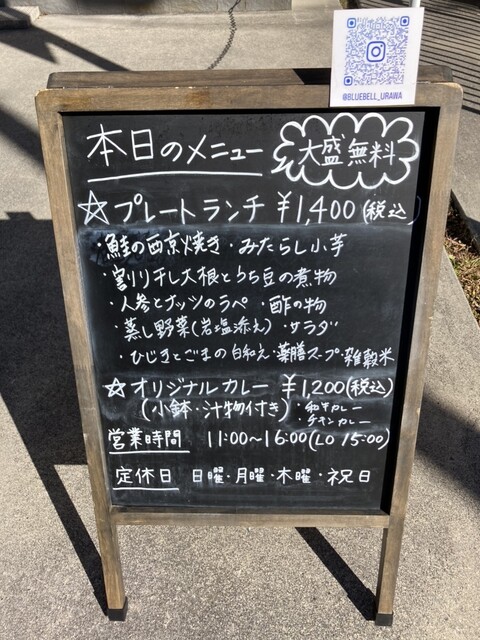 @BLUEBELL_URAWA
本日のメニュー
大盛無料
☆プレートランチ ¥1,400(税込)
・鮭の西京焼き・みたらし小芋
・割り干し大根とうち豆の煮物
・人参とナッツのラペ ・酢の物
・蒸し野菜(岩塩添え)・サラダ
・ひじきとごまの白和え・薬膳スープ・雑穀米
☆オリジナルカレー ¥1,200(税込)
(小鉢・汁物付き)・和牛カレー
・チキンカレー
営業時間 11:00~16:00(LO 15:00)
定休日 日曜・月曜・木曜・祝日